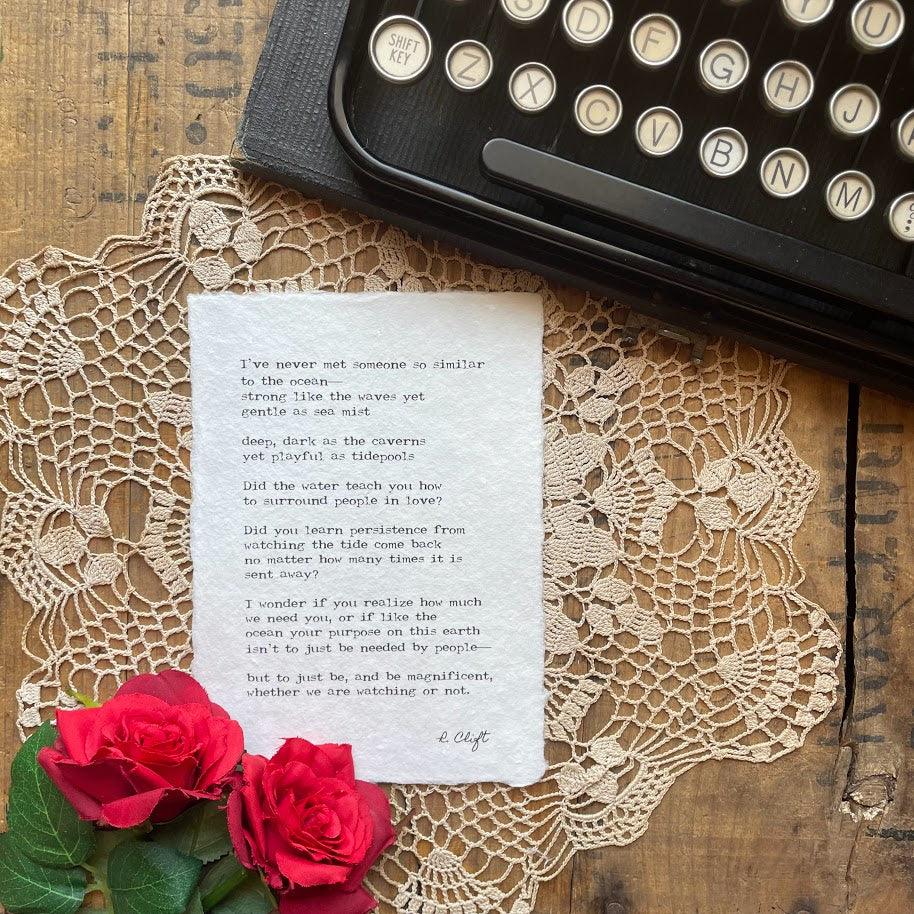 S D F U
SHIFT KEY
Z X C V B N M
G H J
I've never met someone so similar
to the ocean—
strong like the waves yet
gentle as sea mist
deep, dark as the caverns
yet playful as tidepools
Did the water teach you how
to surround people in love?
Did you learn persistence from
watching the tide come back
no matter how many times it is
sent away?
I wonder if you realize how much
we need you, or if like the
ocean your purpose on this earth
isn't to just be needed by people—
but to just be, and be magnificent,
whether we are watching or not.
R. Clift